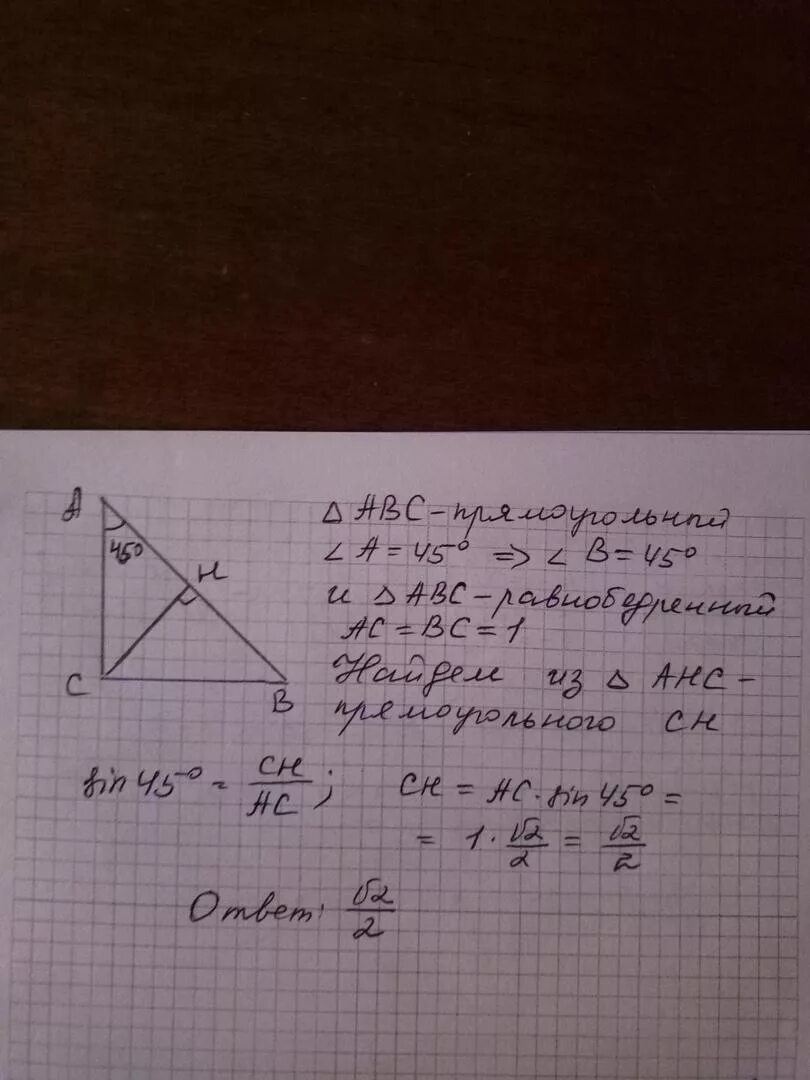 A
45°
H
C
B
△ ABC - прямоугольный
∠ A = 45° => ∠ B = 45°
и △ ABC - равнобедренный
AC = BC = 1
Найдем из △ AHC -
прямоугольного CH
sin 45° = CH/AC; CH = AC · sin 45° =
= 1 · √2/2 = √2/2
Ответ: √2/2